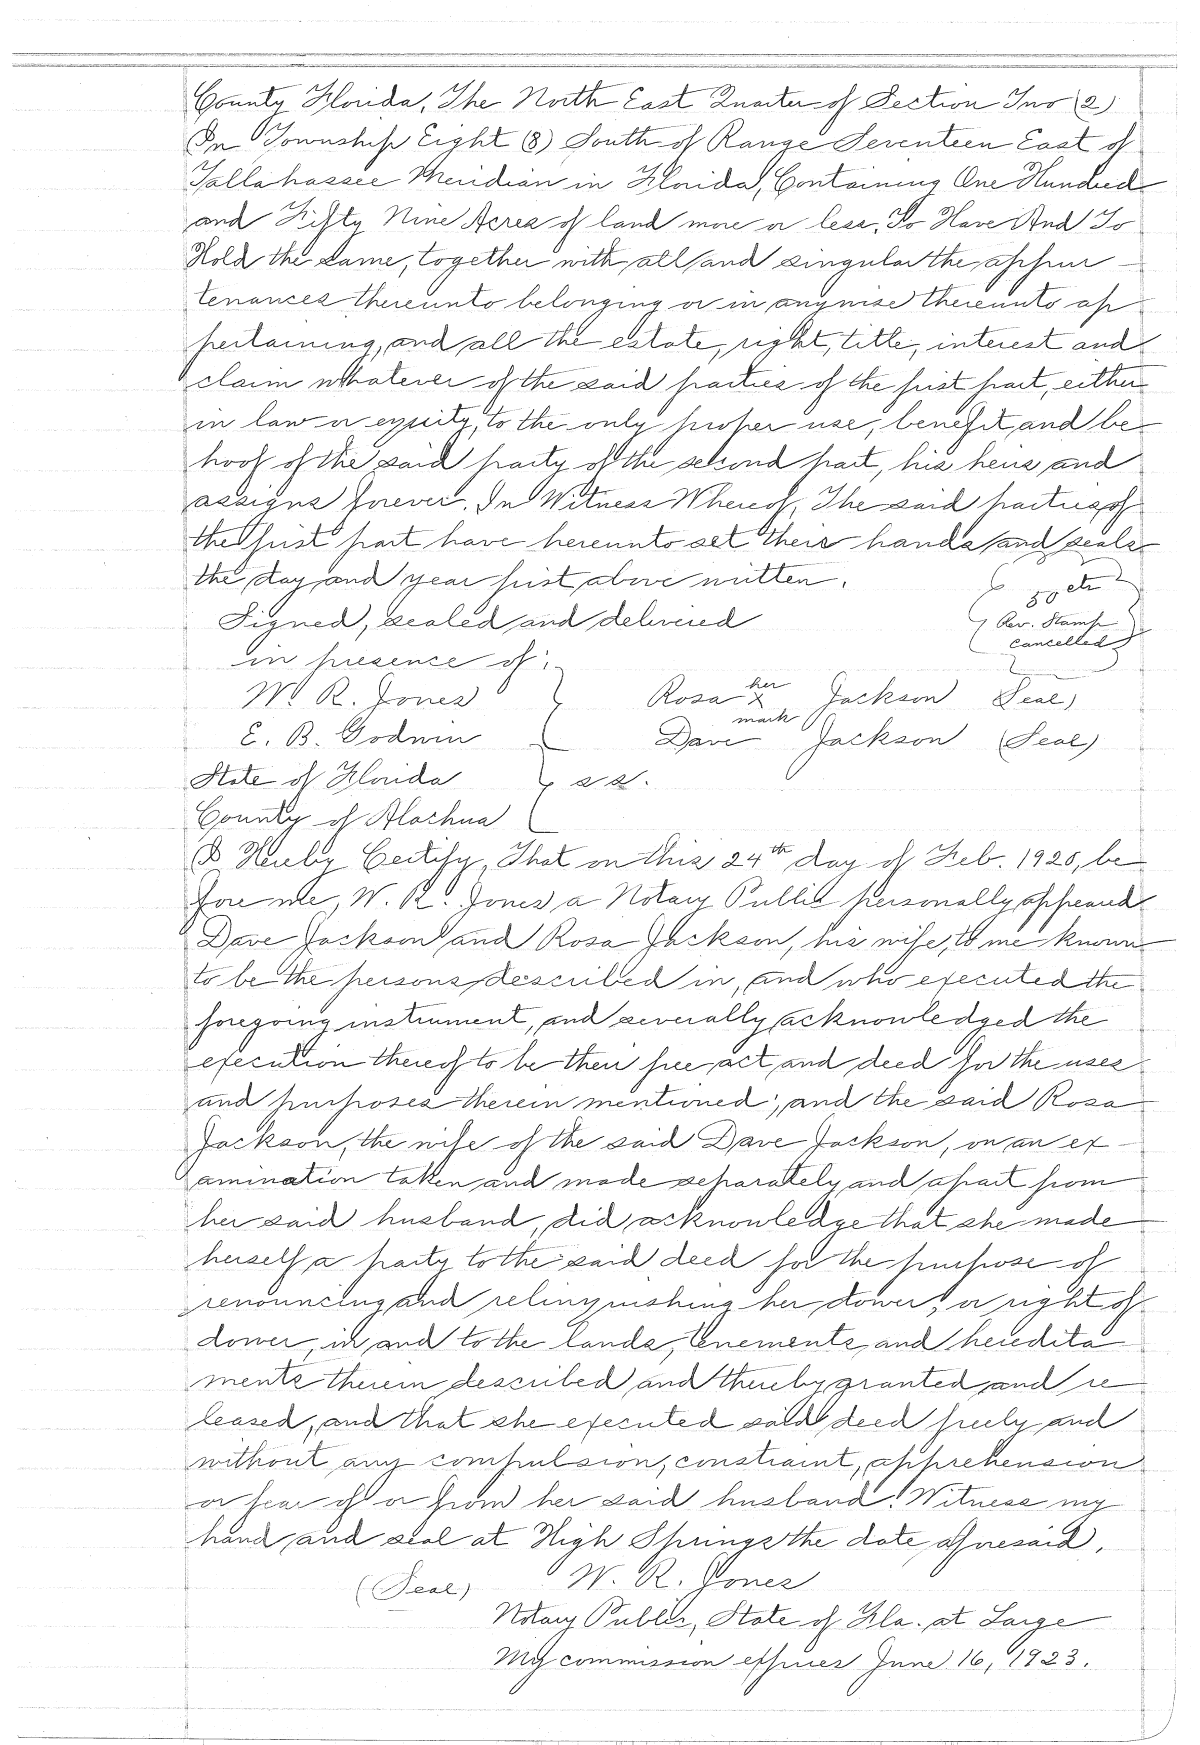 County Florida, The North East Quarter of Section Two (2)
In Township Eight (8) South of Range Seventeen East of
Tallahassee Meridian in Florida, Containing One Hundred
and Fifty Nine Acres of land more or less. To Have And To
Hold the same, together with all and singular the appur
tenances thereunto belonging or in anywise thereunto ap
pertaining, and all the estate, right, title, interest and
claim whatever of the said parties of the first part, either
in law or equity, to the only proper use, benefit, and be
hoof of the said party of the second part, his heirs and
assigns forever. In Witness Whereof, The said parties of
the first part have hereunto set their hands and seals
the day and year first above written.
50 cts
Signed, sealed and delivered
Rev. Stamp
cancelled
in presence of:
W. R. Jones Rosa her X mark Jackson (Seal)
E. B. Godwin Dave Jackson (Seal)
State of Florida } s s.
County of Alachua
I Hereby Certify, That on this 24th day of Feb. 1920, be
fore me, W. R. Jones a Notary Public personally appeared
Dave Jackson and Rosa Jackson, his wife, to me known
to be the persons described in, and who executed the
foregoing instrument, and severally acknowledged the
execution thereof to be their free act and deed for the uses
and purposes therein mentioned; and the said Rosa
Jackson, the wife of the said Dave Jackson, on an ex
amination taken and made separately and apart from
her said husband, did acknowledge that she made
herself a party to the said deed for the purpose of
renouncing and relinquishing her dower, or right of
dower, in and to the lands, tenements, and heredita
ments therein described and thereby granted and re
leased, and that she executed said deed freely and
without any compulsion, constraint, apprehension
or fear of or from her said husband. Witness my
hand and seal at High Springs the date aforesaid.
(Seal) W. R. Jones
Notary Public, State of Fla. at Large
My commission expires June 16, 1923.